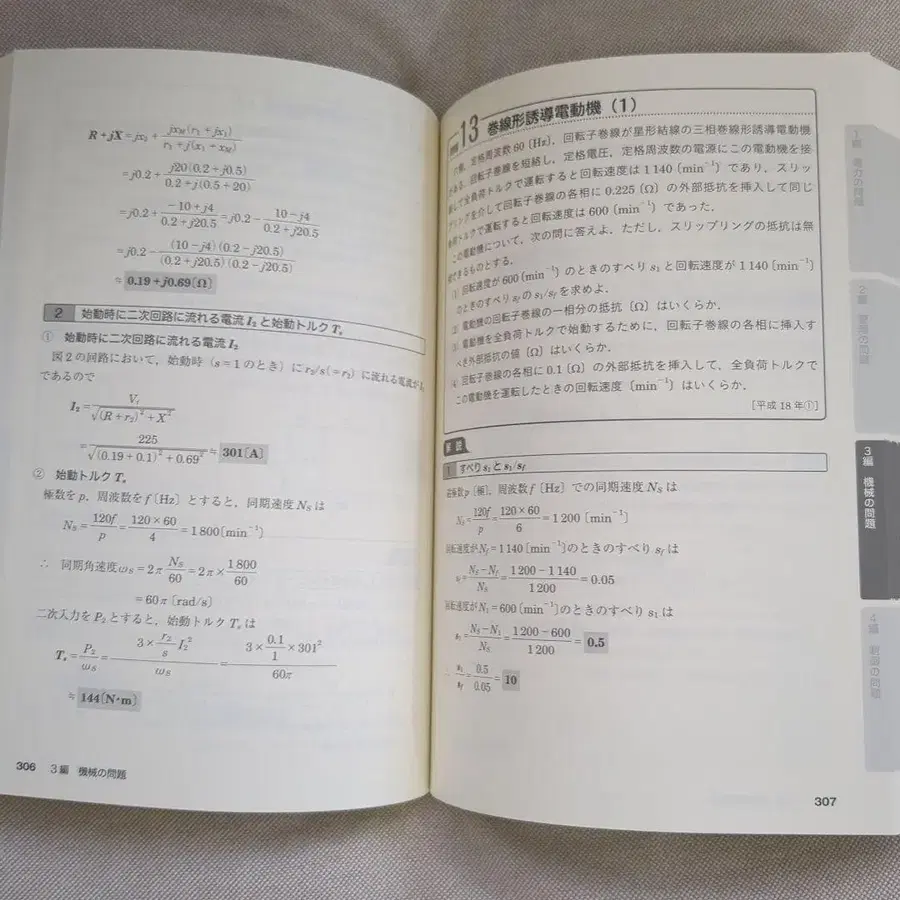 R+jX=jx₂+ jx_M(r₁+jx₁) / r₁+j(x₁+x_M)
=j0.2+ j20(0.2+j0.5) / 0.2+j(0.5+20)
=j0.2+ −10+j4 / 0.2+j20.5 =j0.2− 10−j4 / 0.2+j20.5
=j0.2− (10−j4)(0.2−j20.5) / (0.2+j20.5)(0.2−j20.5)
≒ 0.19+j0.69〔Ω〕
2 始動時に二次回路に流れる電流 I₂ と始動トルク Tₛ
① 始動時に二次回路に流れる電流 I₂
図2の回路において,始動時(s=1のとき)に r₂/s(=r₂)に流れる電流が
であるので
I₂= V₁ / √(R+r₂)²+X²
= 225 / √(0.19+0.1)²+0.69² ≒ 301〔A〕
② 始動トルク Tₛ
極数を p,周波数を f〔Hz〕とすると,同期速度 Nₛ は
Nₛ= 120f / p = 120×60 / 4 =1800〔min⁻¹〕
∴ 同期角速度 ωₛ=2π Nₛ / 60 =2π× 1800 / 60
=60π〔rad/s〕
二次入力を P₂ とすると,始動トルク Tₛ は
Tₛ= P₂ / ωₛ = 3× r₂ / s I₂² / ωₛ = 3× 0.1 / 1 ×301² / 60π
≒ 144〔N・m〕
306 3編 機械の問題
13 巻線形誘導電動機(1)
定格周波数60〔Hz〕,回転子巻線が星形結線の三相巻線形誘導電動機
がある.回転子巻線を短絡し,定格電圧,定格周波数の電源にこの電動機を接
して全負荷トルクで運転すると回転速度は1140〔min⁻¹〕であり,スリッ
プリングを介して回転子巻線の各相に0.225〔Ω〕の外部抵抗を挿入して同じ
負荷トルクで運転すると回転速度は600〔min⁻¹〕であった.
この電動機について,次の問に答えよ.ただし,スリップリングの抵抗は無
視できるものとする.
(1) 回転速度が600〔min⁻¹〕のときのすべり s₁ と回転速度が1140〔min⁻¹〕
のときのすべり s_f の s₁/s_f を求めよ.
(2) 電動機の回転子巻線の一相分の抵抗〔Ω〕はいくらか.
(3) 電動機を全負荷トルクで始動するために,回転子巻線の各相に挿入す
べき外部抵抗の値〔Ω〕はいくらか.
(4) 回転子巻線の各相に0.1〔Ω〕の外部抵抗を挿入して,全負荷トルクで
この電動機を運転したときの回転速度〔min⁻¹〕はいくらか.
[平成18年①]
解説
1 すべり s₁ と s₁/s_f
極数 p〔極〕,周波数 f〔Hz〕での同期速度 Nₛ は
Nₛ= 120f / p = 120×60 / 6 =1200〔min⁻¹〕
回転速度が N_f=1140〔min⁻¹〕のときのすべり s_f は
s_f= Nₛ−N_f / Nₛ = 1200−1140 / 1200 =0.05
回転速度が N₁=600〔min⁻¹〕のときのすべり s₁ は
s₁= Nₛ−N₁ / Nₛ = 1200−600 / 1200 = 0.5
∴ s₁ / s_f = 0.5 / 0.05 = 10
307
1編 電力の問題
2編 管理の問題
3編 機械の問題
4編 制御の問題